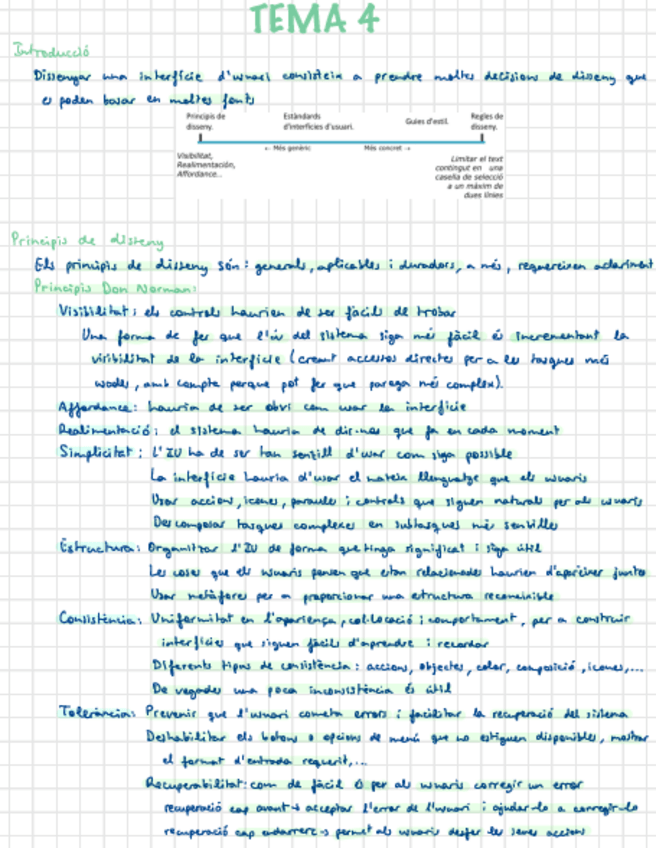 TEMA 4
Introducció
Dissenyar una interfície d'usuari consisteix a prendre moltes decisions de disseny que
es poden basar en moltes fonts
Principis de disseny.
Estàndards d'interfícies d'usuari.
Guies d'estil.
Regles de disseny.
← Més genèric
Més concret →
Visibilitat,
Realimentación,
Affordance...
Limitar el text
contingut en una
casella de selecció
a un màxim de
dues línies
Principis de disseny
Els principis de disseny són: generals, aplicables i duradors, a més, requereixen aclariment
Principis Don Norman:
Visibilitat: els controls haurien de ser fàcils de trobar
Una forma de fer que l'ús del sistema siga més fàcil és incrementant la
visibilitat de la interfície (creant accessos directes per a les tasques més
usades, amb compte perque pot fer que parega més complex).
Affordance: hauria de ser obvi com usar la interfície
Realimentació: el sistema hauria de dir-nos que fa en cada moment
Simplicitat: L'IU ha de ser tan senzill d'usar com siga possible
La interfície hauria d'usar el mateix llenguatge que els usuaris
Usar accions, icones, paraules i controls que siguen naturals per als usuaris
Descomposar tasques complexes en subtasques més senzilles
Estructura: Organitzar l'IU de forma que tinga significat i siga útil
Les coses que els usuaris pensen que estan relacionades haurien d'aparèixer juntes
Usar metàfores per a proporcionar una estructura reconeixible
Consistència: Uniformitat en l'aparença, col·locació i comportament, per a construir
interfícies que siguen fàcils d'aprendre i recordar
Diferents tipus de consistència: accions, objectes, color, composició, icones,...
De vegades una poca inconsistència és útil
Tolerància: Prevenir que l'usuari cometa errors i facilitar la recuperació del sistema
Deshabilitar els botons o opcions de menú que no estiguen disponibles, mostrar
el format d'entrada requerit,...
Recuperabilitat: com de fàcil és per als usuaris corregir un error
recuperació cap avant → acceptar l'error de l'usuari i ajudar-lo a corregir-lo
recuperació cap endarrere → permet als usuaris desfer les seues accions